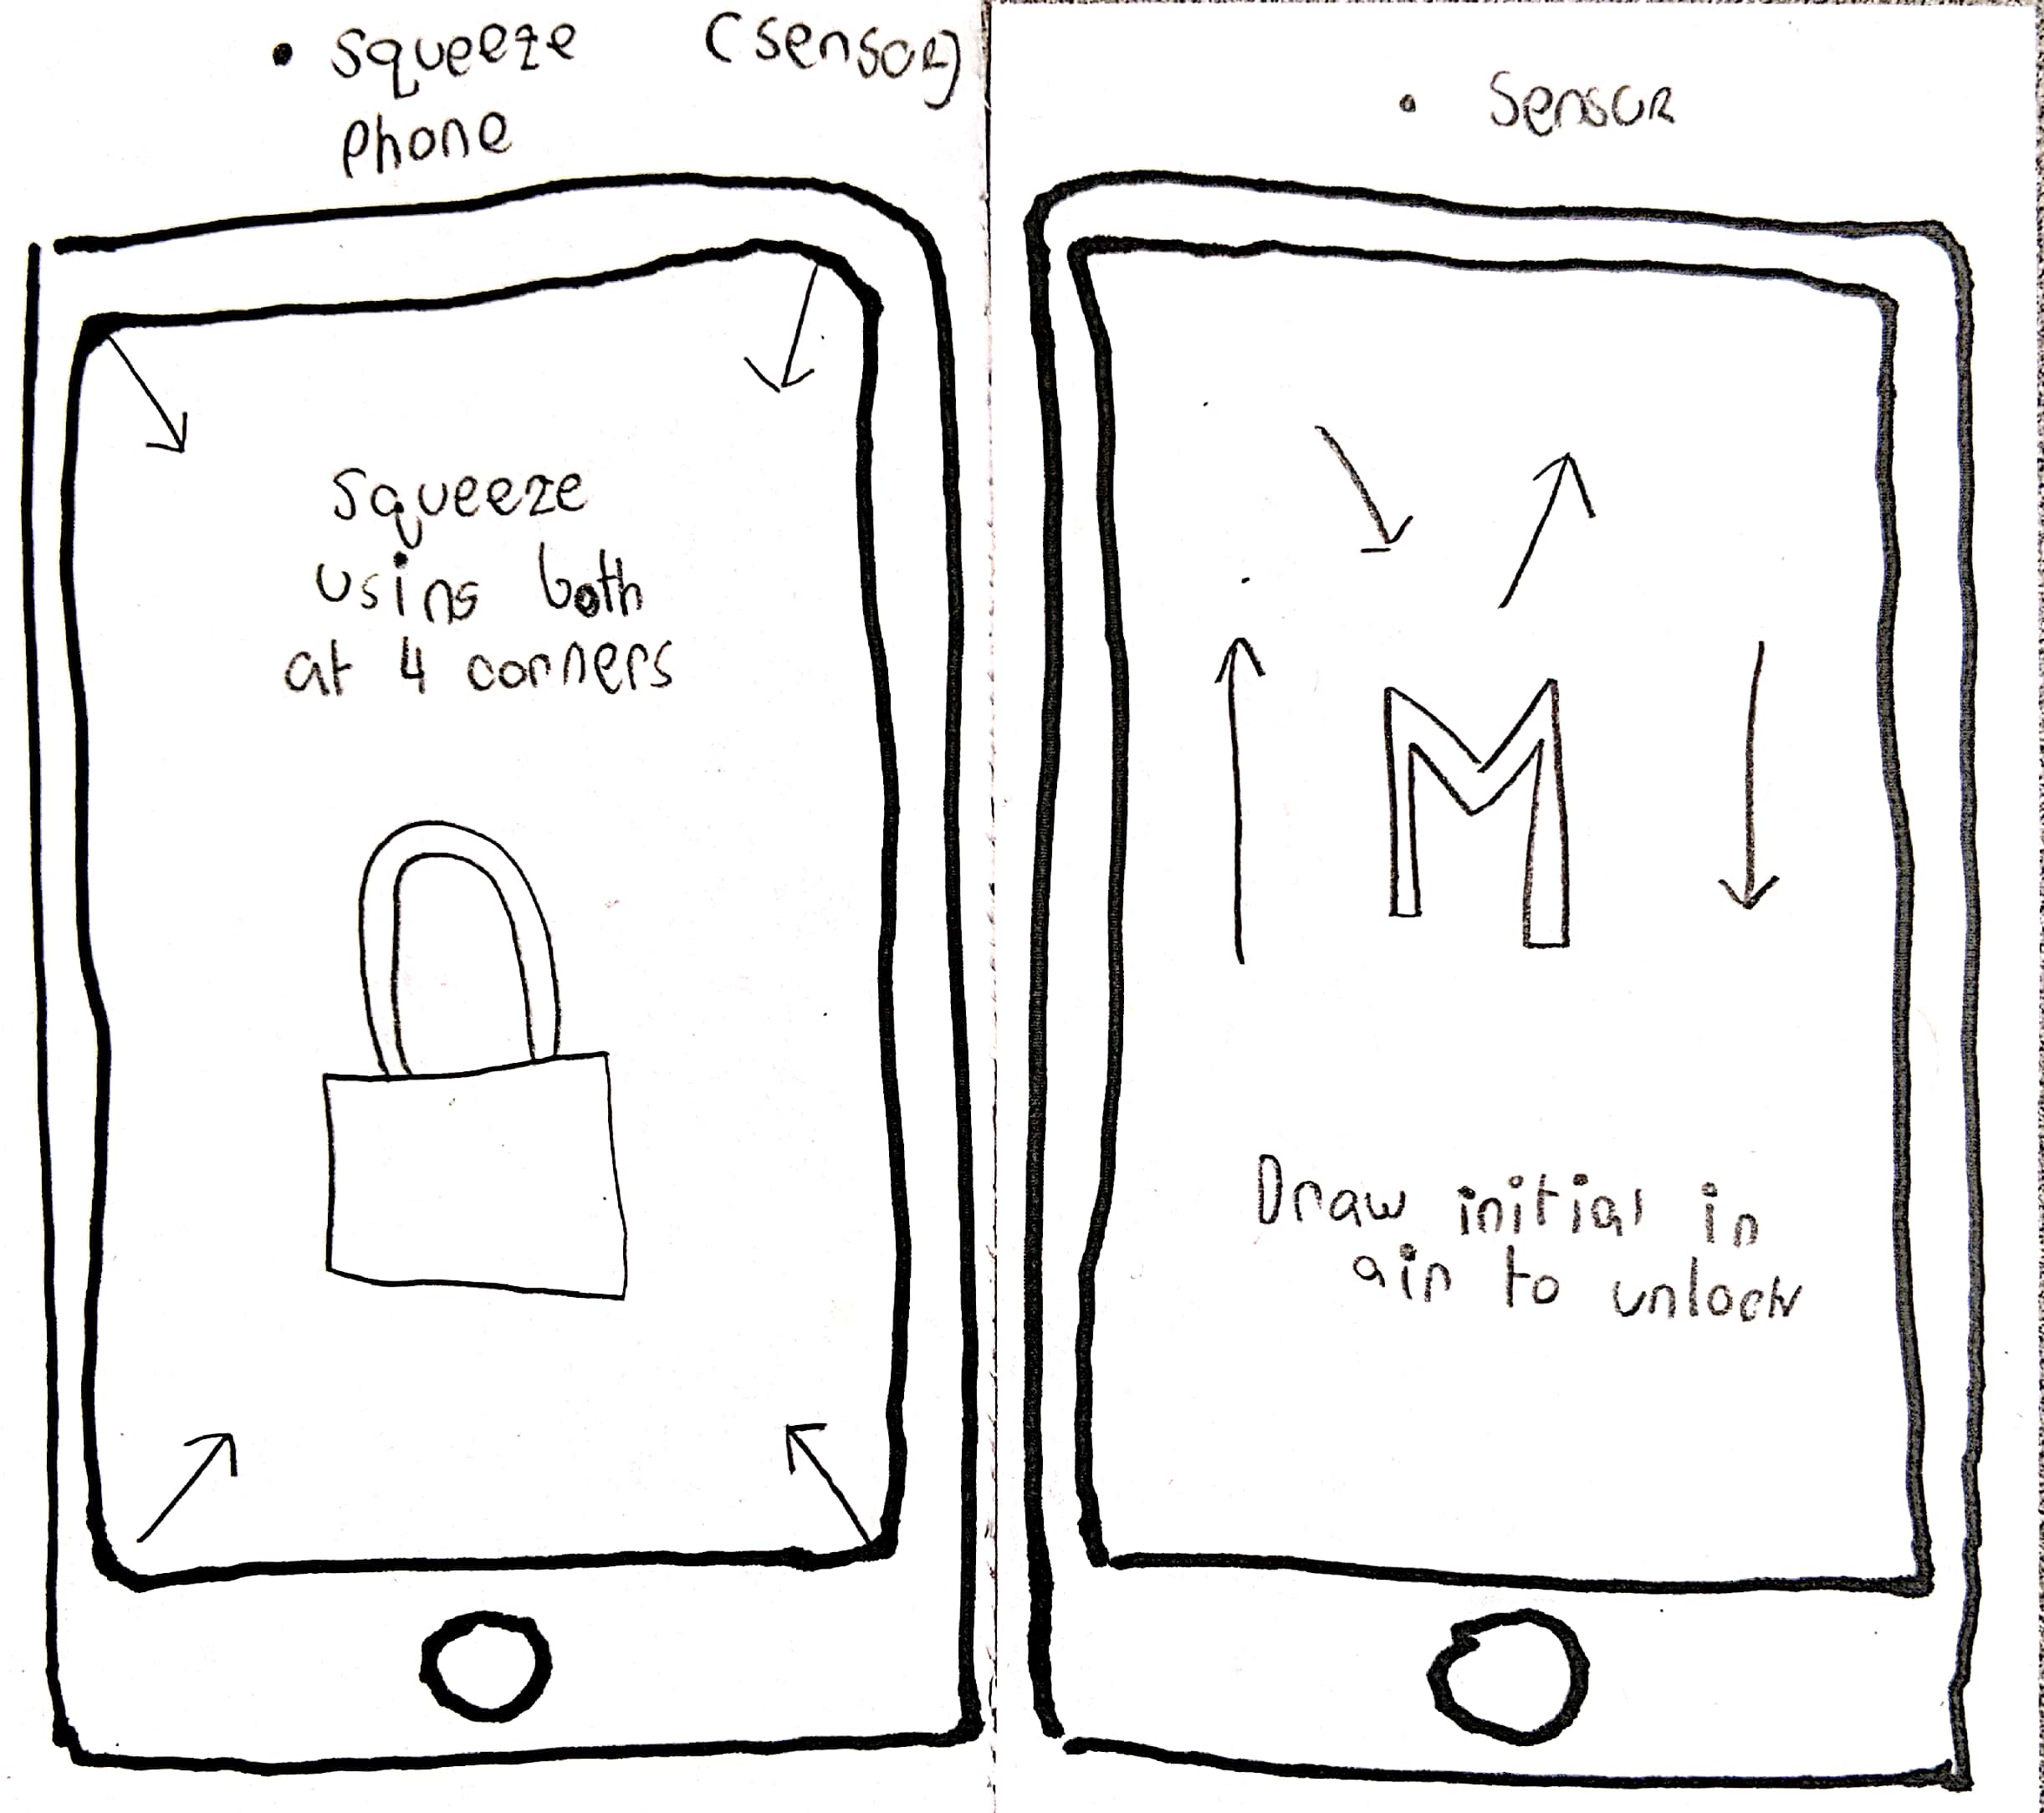 • Squeeze (sensor)
Phone
Squeeze
using both
at 4 corners
• Sensor
M
Draw initial in
air to unlock